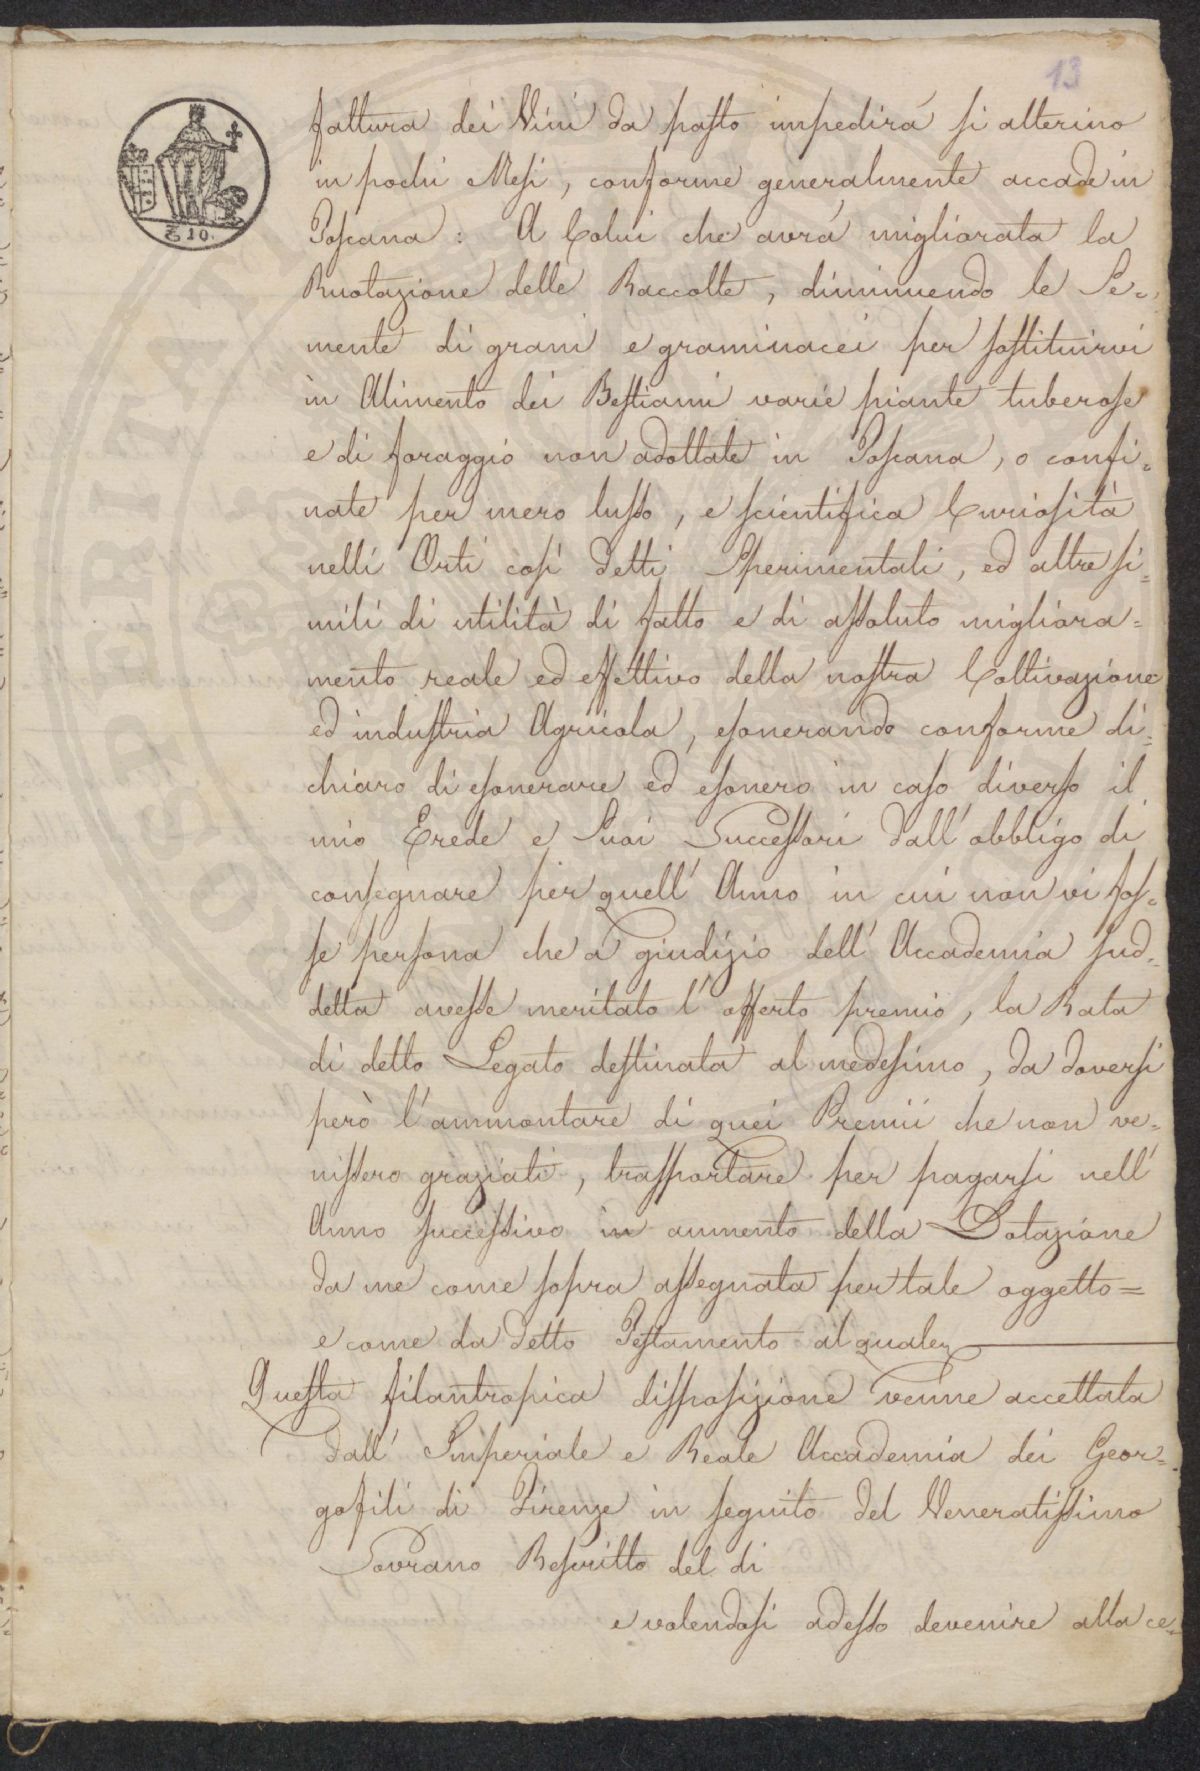 13
fattura dei Vini da pasto impedirà si alterino
in pochi Mesi, conforme generalmente accade in
Toscana: A Colui che avrà migliorata la
Ruotazione delle Raccolte, diminuendo le Se=
mente di grani e graminacei per sostituirvi
in Alimento dei Bestiami varie piante tuberose
e di foraggio non adottate in Toscana, o confi=
nate per mero lusso, e scientifica Curiosità
nelli Orti così detti Sperimentali, ed altre si=
mili di utilità di fatto e di assoluto migliora=
mento reale ed effettivo della nostra Coltivazione
ed industria Agricola, esonerando conforme di=
chiaro di esonerare ed esonero in caso diverso il
mio Erede e Suoi Successori dall' obbligo di
consegnare per quell' Anno in cui non vi fos=
se persona che a giudizio dell' Accademia sud=
detta avesse meritato l' offerto premio, la Rata
di detto Legato destinata al medesimo, da doversi
però l' ammontare di quei Premii che non ve=
nissero graziati, trasportare per pagarsi nell'
Anno successivo in aumento della Dotazione
da me come sopra assegnata per tale oggetto=
e come da detto Testamento al quale
Questa filantropica disposizione venne accettata
dall' Imperiale e Reale Accademia dei Geor=
gofili di Firenze in seguito del Veneratissimo
Sovrano Rescritto del di
e volendosi adesso devenire alla ce=
10.
PROSPERITA